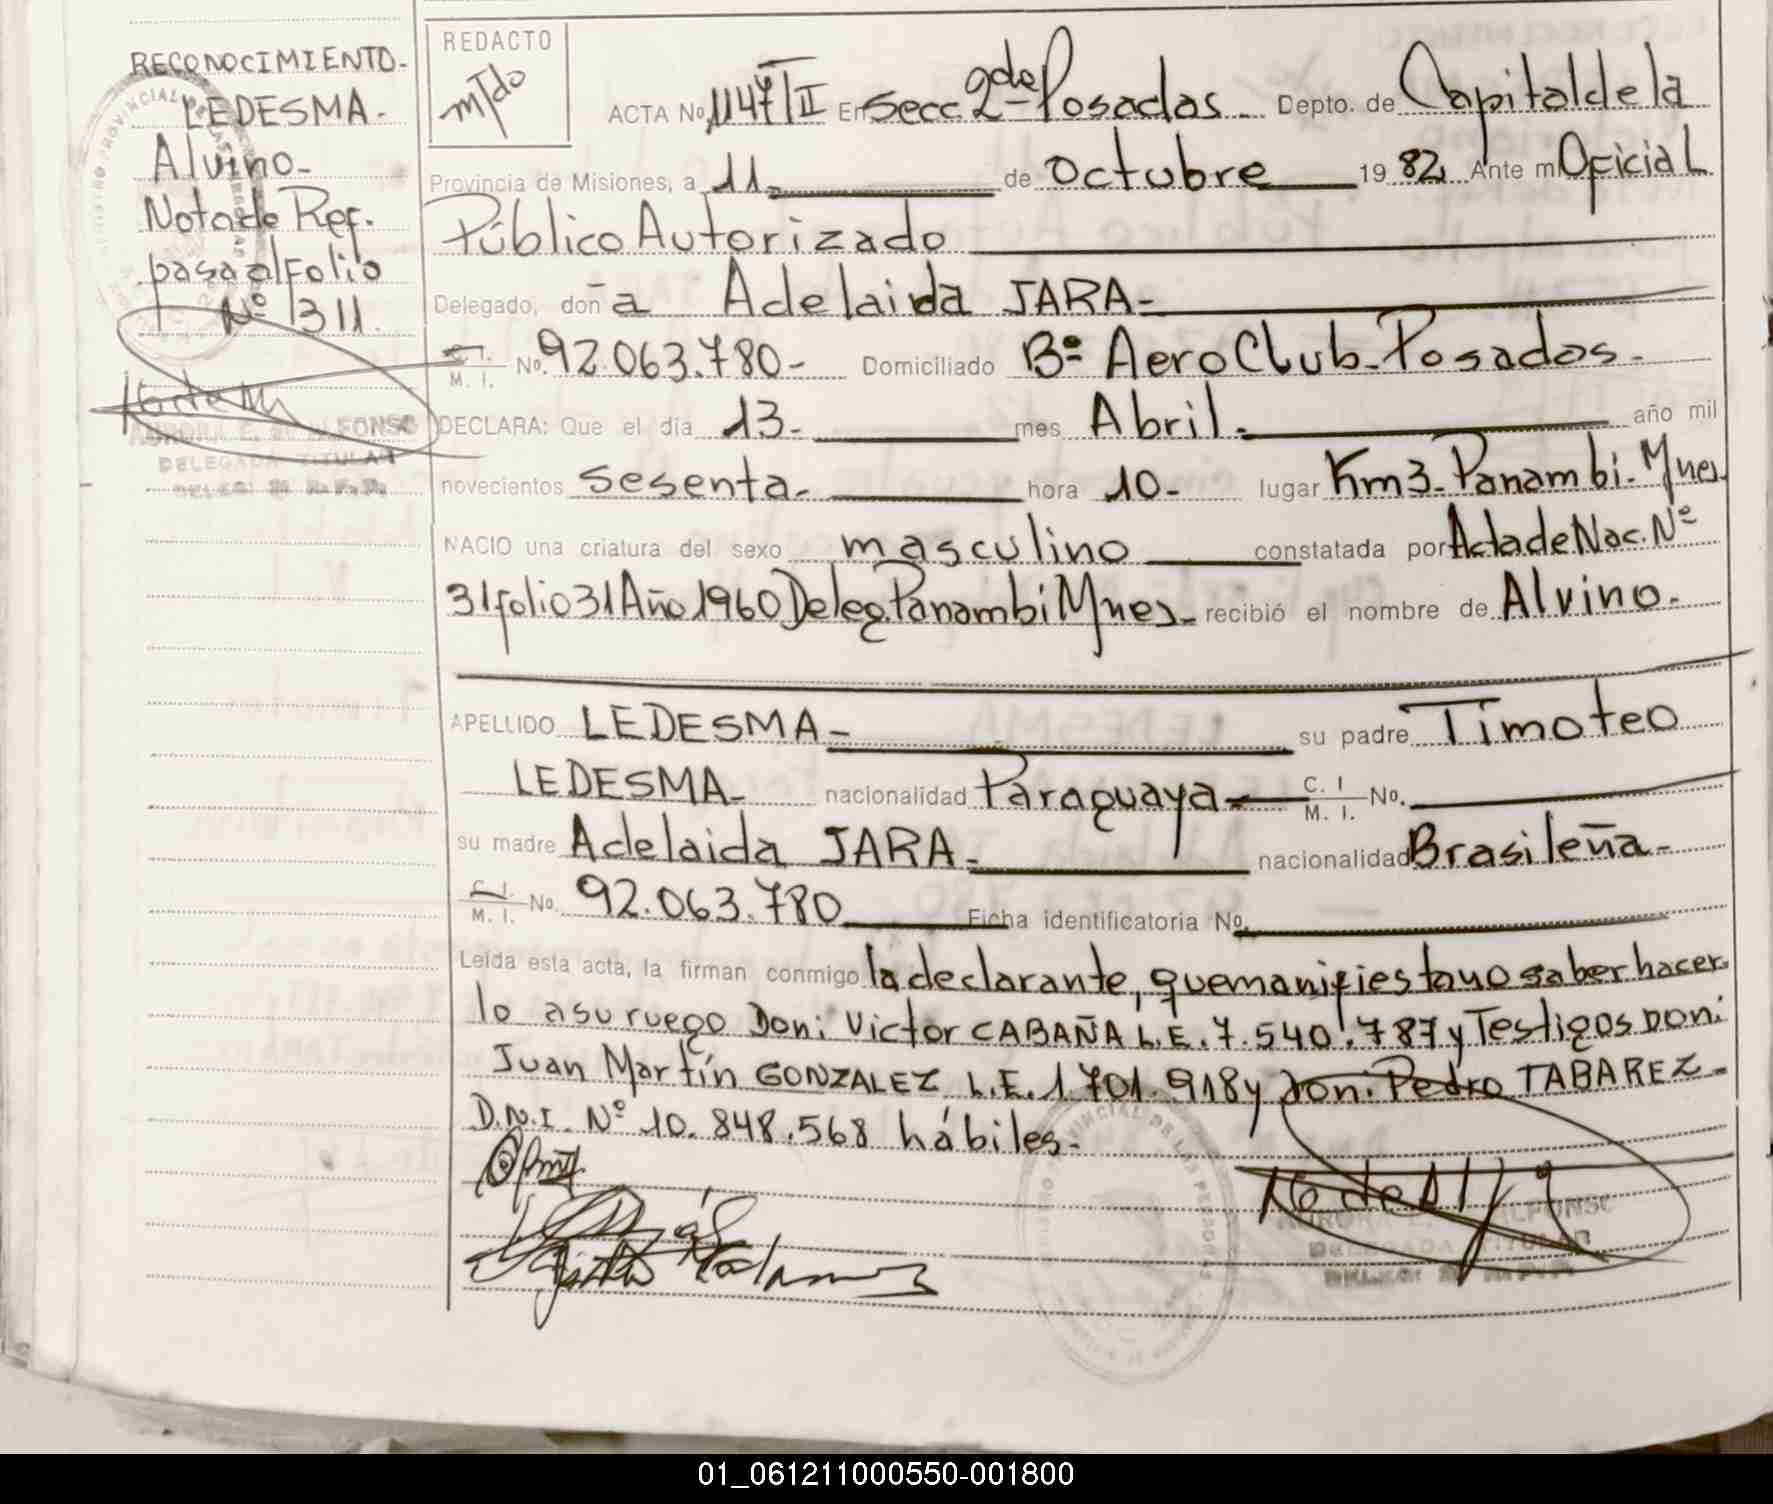 RECONOCIMIENTO-
LEDESMA-
Alvino-
Nota de Ref.
pasa al Folio
Nº 1311.
AURORA E. DE ALFONSO
DELEGADA TITULAR
REDACTO
ACTA No 1147/II En Secc. 2da Posadas. Depto. de Capital de la
Provincia de Misiones, a 11- de Octubre 1982. Ante mi Oficial
Público Autorizado
Delegado, doña Adelaida JARA-
C.I. M. I. No. 92.063.780- Domiciliado Bº AeroClub-Posadas-
DECLARA: Que el día 13- mes Abril- año mil
novecientos sesenta- hora 10- lugar Km3-Panambi-Mnes.
NACIO una criatura del sexo masculino constatada por Acta de Nac. Nº
31 folio 31 Año 1960 Deleg. Panambi Mnes- recibió el nombre de Alvino-
APELLIDO LEDESMA- su padre Timoteo
LEDESMA- nacionalidad Paraguaya- C. I M. I. No.
su madre Adelaida JARA- nacionalidad Brasileña-
C.I. M. I. No. 92.063.780 Ficha identificatoria No.
Leída esta acta, la firman conmigo la declarante, que manifiesta no saber hacer
lo a su ruego Don: Victor CABAÑA L.E. 7.540.787 y Testigos Don:
Juan Martín GONZALEZ L.E. 1.701.918 y don: Pedro TABAREZ-
D.N.I. Nº 10.848.568 hábiles-
AURORA E. DE ALFONSO
DELEGADA TITULAR
01_061211000550-001800